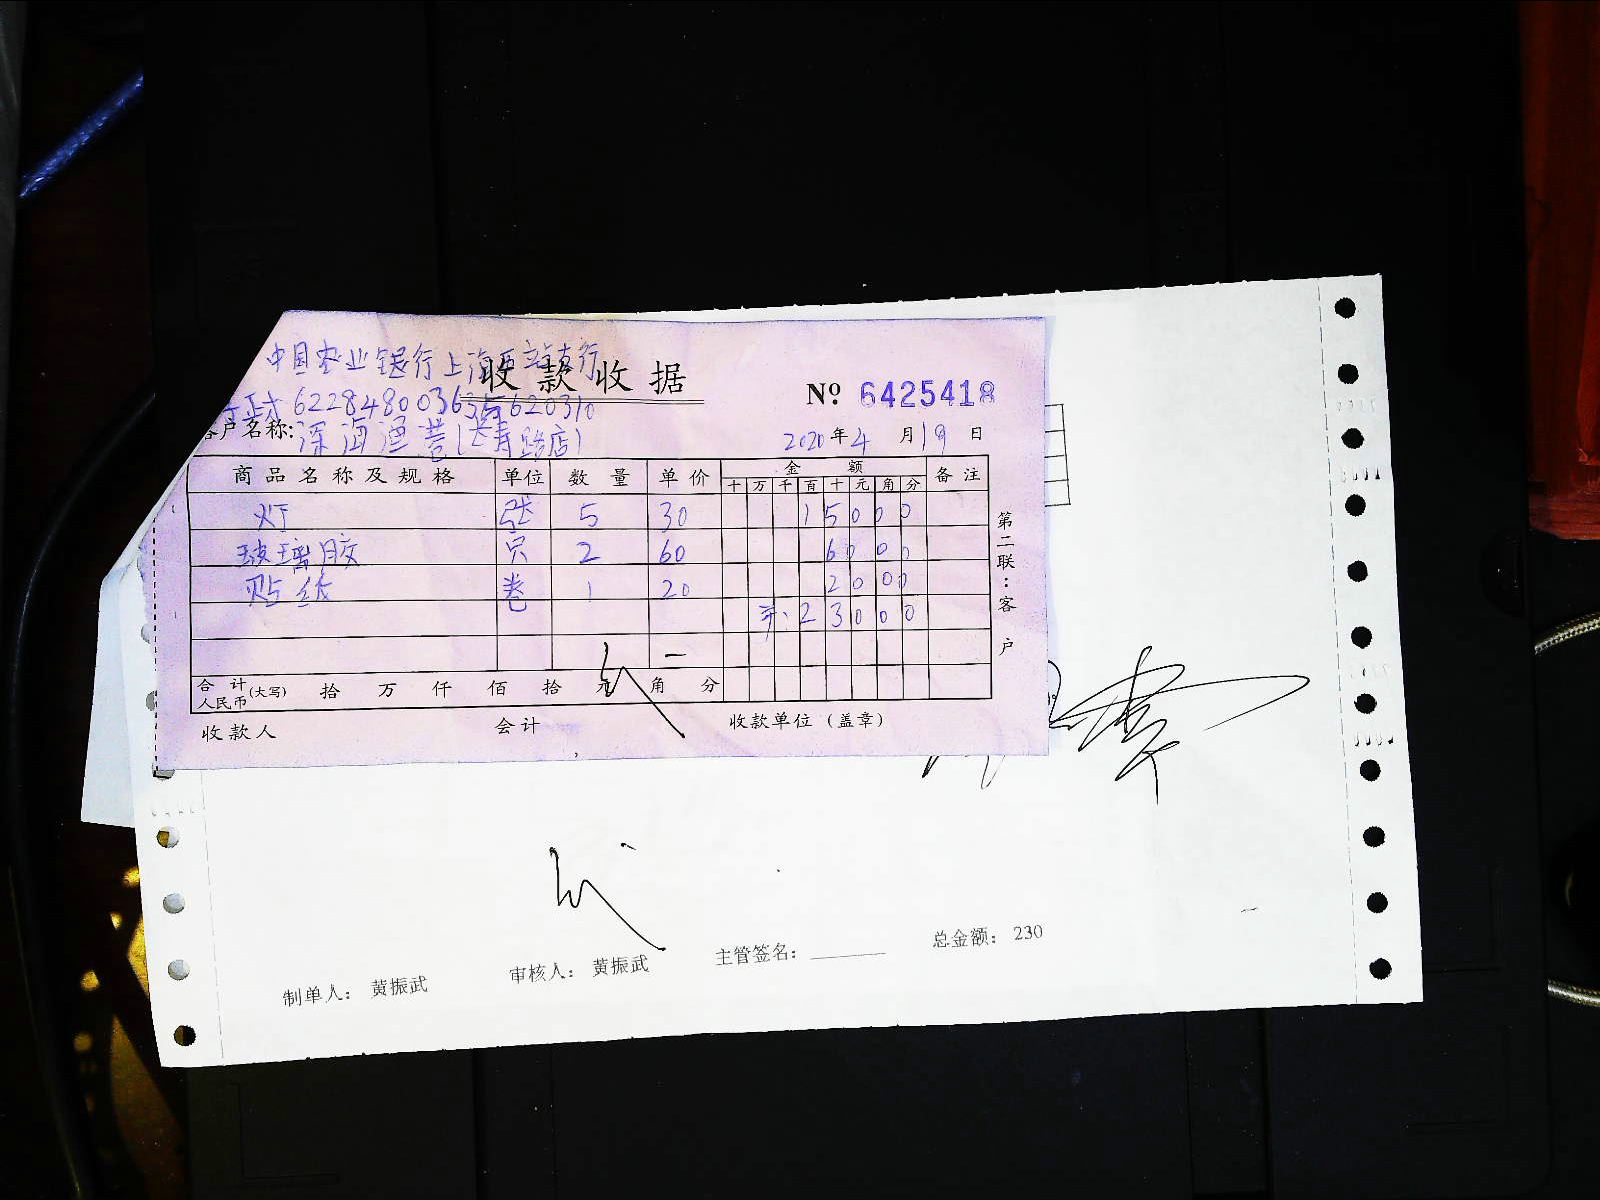 中国农业银行上海
收款收据
№ 6425418
客户名称: 深海渔
2020年4月19日
商品名称及规格 单位 数量 单价 金额 备注
十 万 千 百 十 元 角 分
灯 张 5 30 15000
玻璃胶 只 2 60 6000
贴纸 卷 1 20 2000
23000
合计人民币(大写) 拾 万 仟 佰 拾 元 角 分
收款人 会计 收款单位(盖章)
第二联:客户
制单人: 黄振武 审核人: 黄振武 主管签名: 总金额: 230